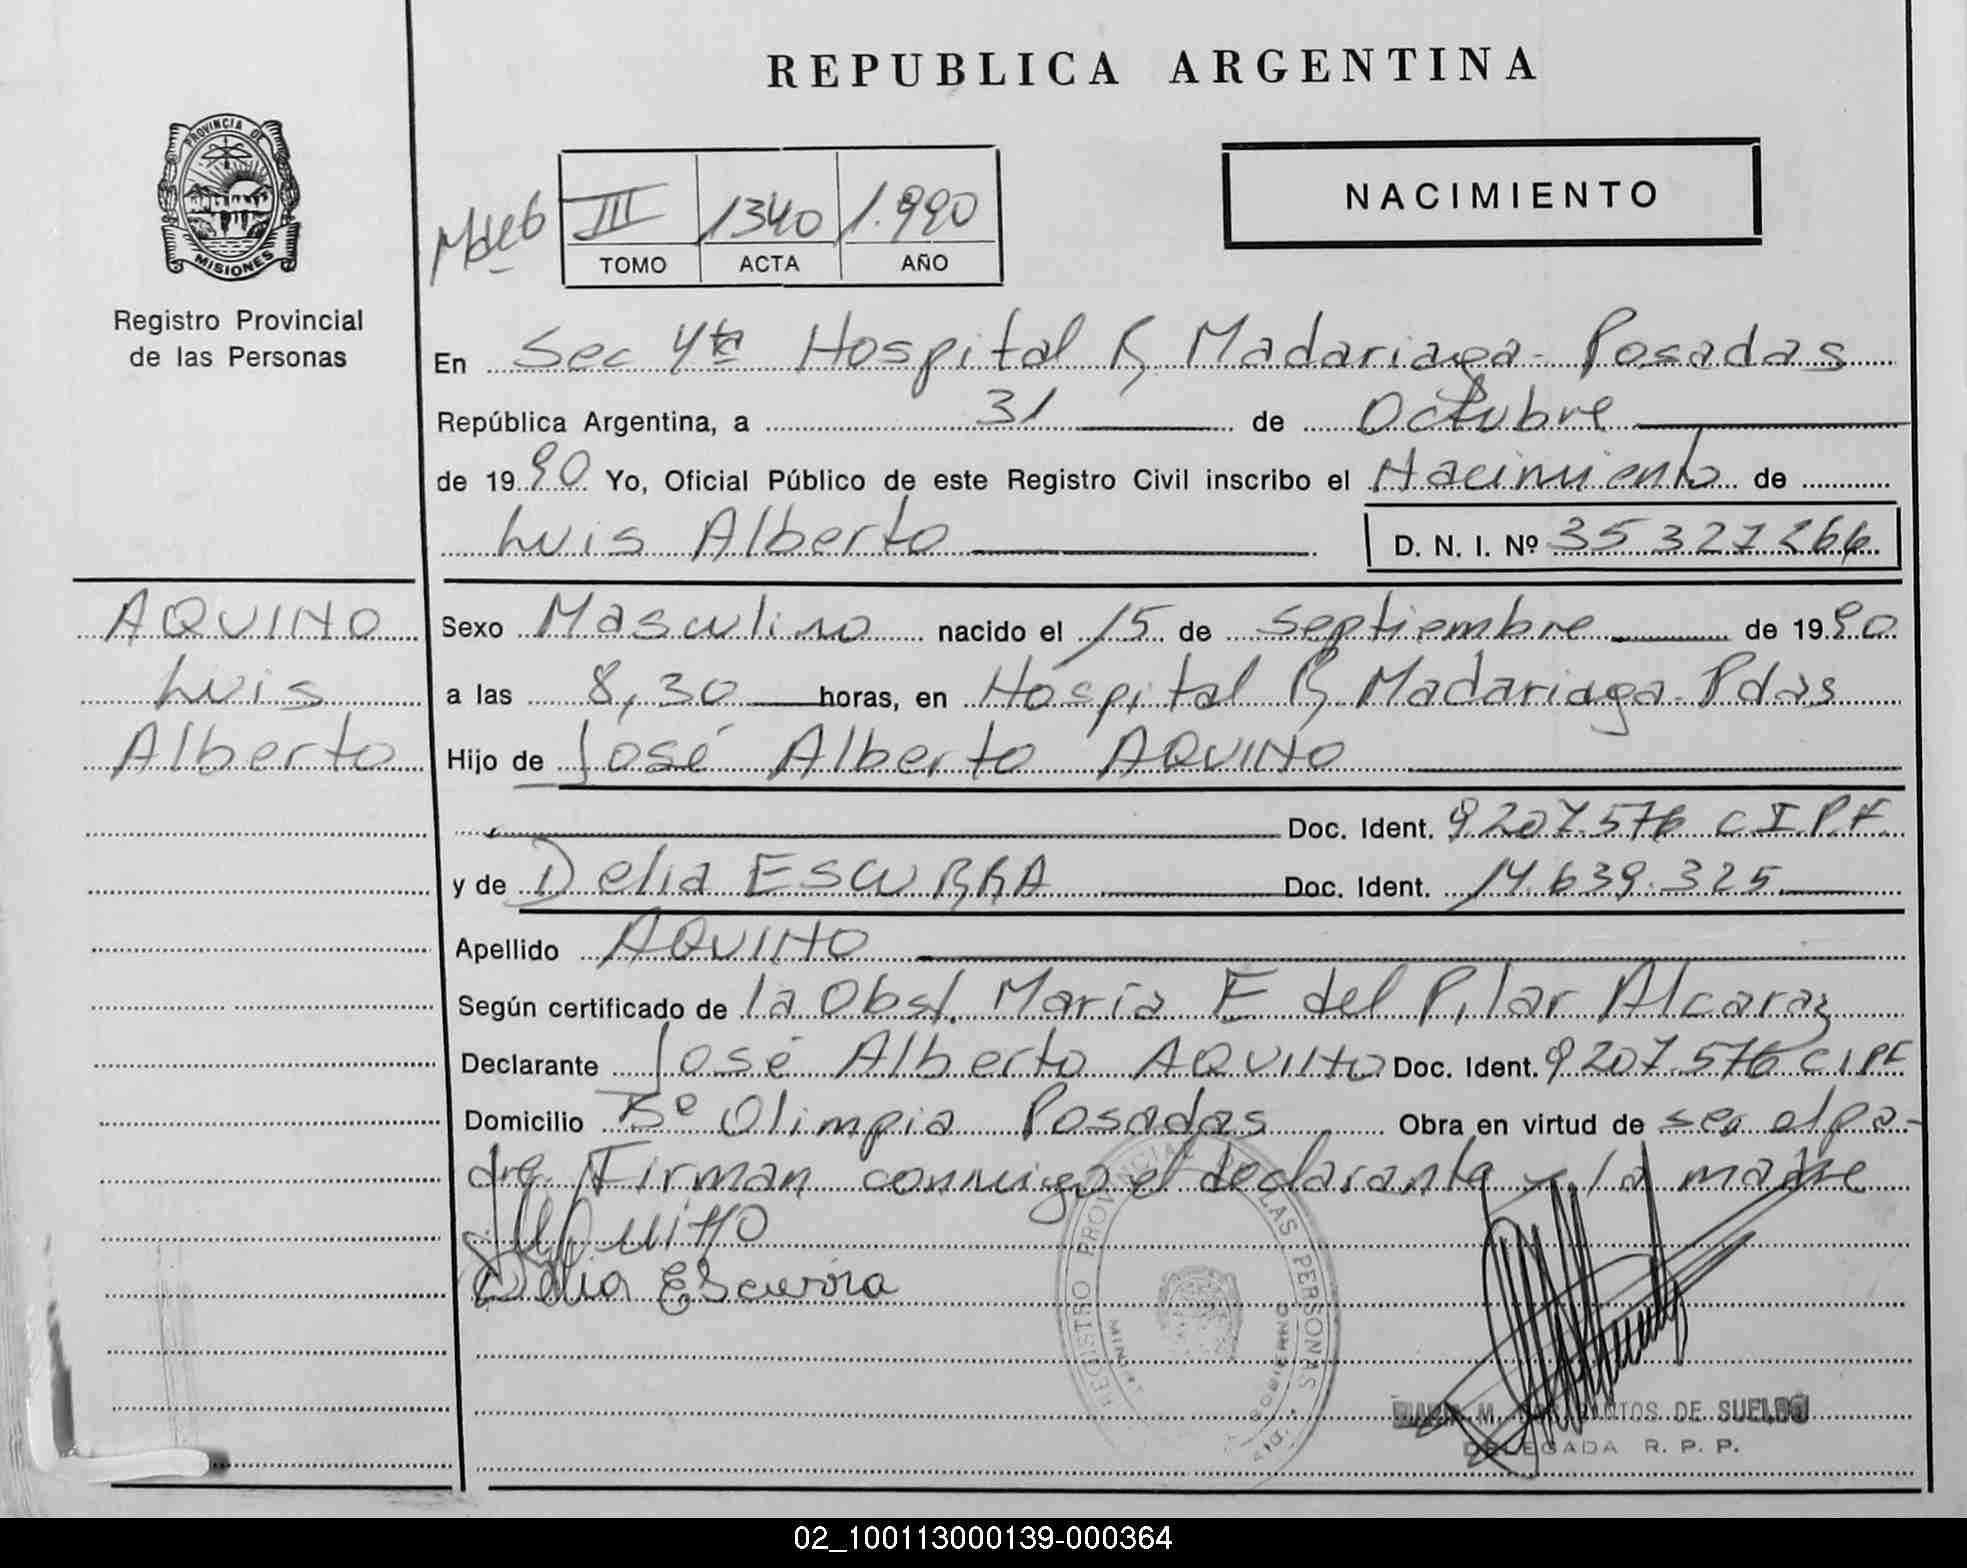 REPUBLICA ARGENTINA
PROVINCIA DE
MISIONES
Registro Provincial
de las Personas
III 1340 1.990
TOMO ACTA AÑO
NACIMIENTO
En Sec 4ta Hospital R Madariaga - Posadas
República Argentina, a 31 de Octubre
de 1990 Yo, Oficial Público de este Registro Civil inscribo el Nacimiento de
Luis Alberto D. N. I. Nº 35327266
AQUINO
Luis
Alberto
Sexo Masculino nacido el 15 de septiembre de 1990
a las 8,30 horas, en Hospital R Madariaga - Pdas
Hijo de José Alberto AQUINO
Doc. Ident. 9207.576 C I.P.F.
y de Delia ESCURRA Doc. Ident. 14.639.325
Apellido AQUINO
Según certificado de la Obst. María E del Pilar Alcaraz
Declarante José Alberto AQUINO Doc. Ident. 9207.576 C I PF
Domicilio Bº Olimpia Posadas Obra en virtud de ser el pa-
dre. Firman conmigo el declarante y la madre
Delia Escurra
REGISTRO PROVINCIAL DE LAS PERSONAS
GOBIERNO
M. SANTOS DE SUELDO
DELEGADA R. P. P.
02_100113000139-000364